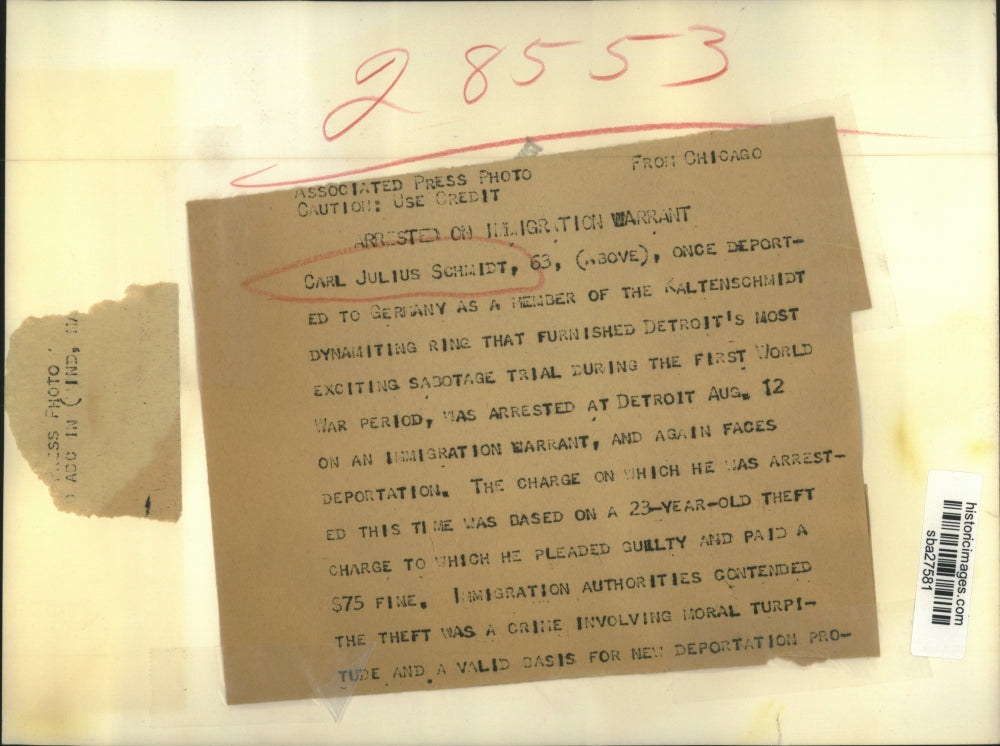 28553
ASSOCIATED PRESS PHOTO FROM CHICAGO
CAUTION: USE CREDIT
ARRESTED ON IMMIGRATION WARRANT
CARL JULIUS SCHMIDT, 63, (ABOVE), ONCE DEPORT-
ED TO GERMANY AS A MEMBER OF THE KALTENSCHMIDT
DYNAMITING RING THAT FURNISHED DETROIT'S MOST
EXCITING SABOTAGE TRIAL DURING THE FIRST WORLD
WAR PERIOD, WAS ARRESTED AT DETROIT AUG. 12
ON AN IMMIGRATION WARRANT, AND AGAIN FACES
DEPORTATION. THE CHARGE ON WHICH HE WAS ARREST-
ED THIS TIME WAS BASED ON A 23-YEAR-OLD THEFT
CHARGE TO WHICH HE PLEADED GUILTY AND PAID A
$75 FINE. IMMIGRATION AUTHORITIES CONTENDED
THE THEFT WAS A CRIME INVOLVING MORAL TURPI-
TUDE AND A VALID BASIS FOR NEW DEPORTATION PRO-
PHOTO
IN (WIND,
historicimages.com
sba27581